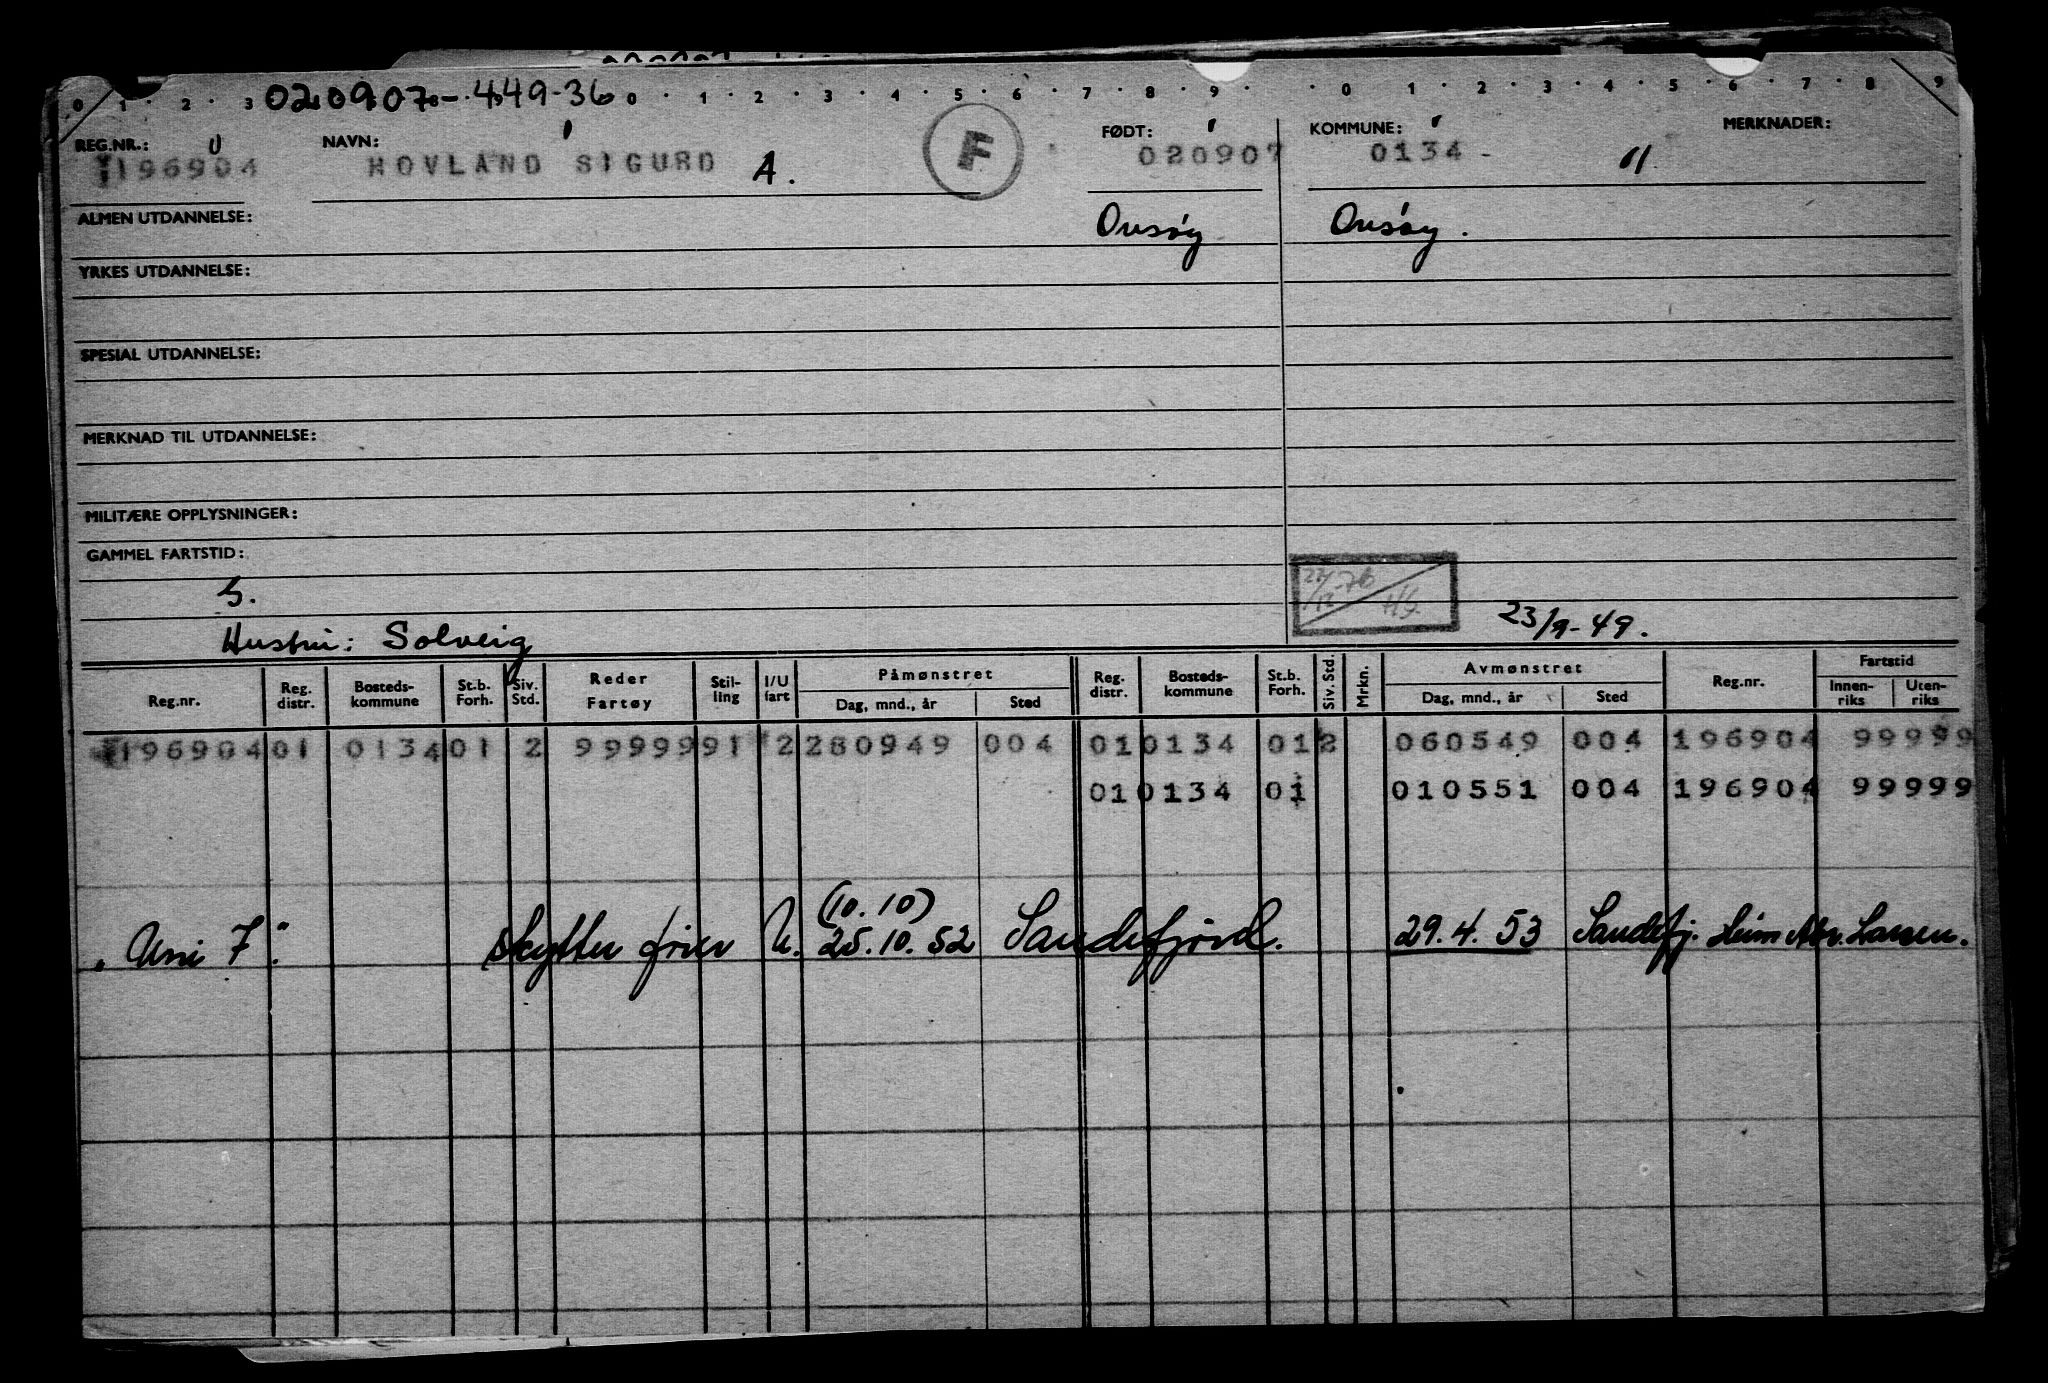 020907-449-36
0 1 2 3 0 1 2 3 4 5 6 7 8 9 0 1 2 3 4 5 6 7 8 9
REG.NR.: NAVN: FØDT: KOMMUNE: MERKNADER:
196904 HOVLAND SIGURD A. F 020907 0134 - 11
ALMEN UTDANNELSE: Onsøy Onsøy.
YRKES UTDANNELSE:
SPESIAL UTDANNELSE:
MERKNAD TIL UTDANNELSE:
MILITÆRE OPPLYSNINGER:
GAMMEL FARTSTID:
S. 23/9-49.
Hustru: Solveig
Reg.nr. Reg. distr. Bosteds-kommune St.b. Forh. Siv. Std. Reder Fartøy Stil-ling I/U fart Påmønstret Dag, mnd., år Sted Reg. distr. Bosteds-kommune St.b. Forh. Siv. Std. Mrkn. Avmønstret Dag, mnd., år Sted Reg.nr. Fartstid Innen-riks Uten-riks
196904 01 0134 01 2 99999 91 2 280949 004 01 0134 01 2 060549 004 196904 99999
01 0134 01 010551 004 196904 99999
(10.10)
"Uni 7" skytter U. 25.10.52 Sandefjord. 29.4.53 Sandefj. Larsen.